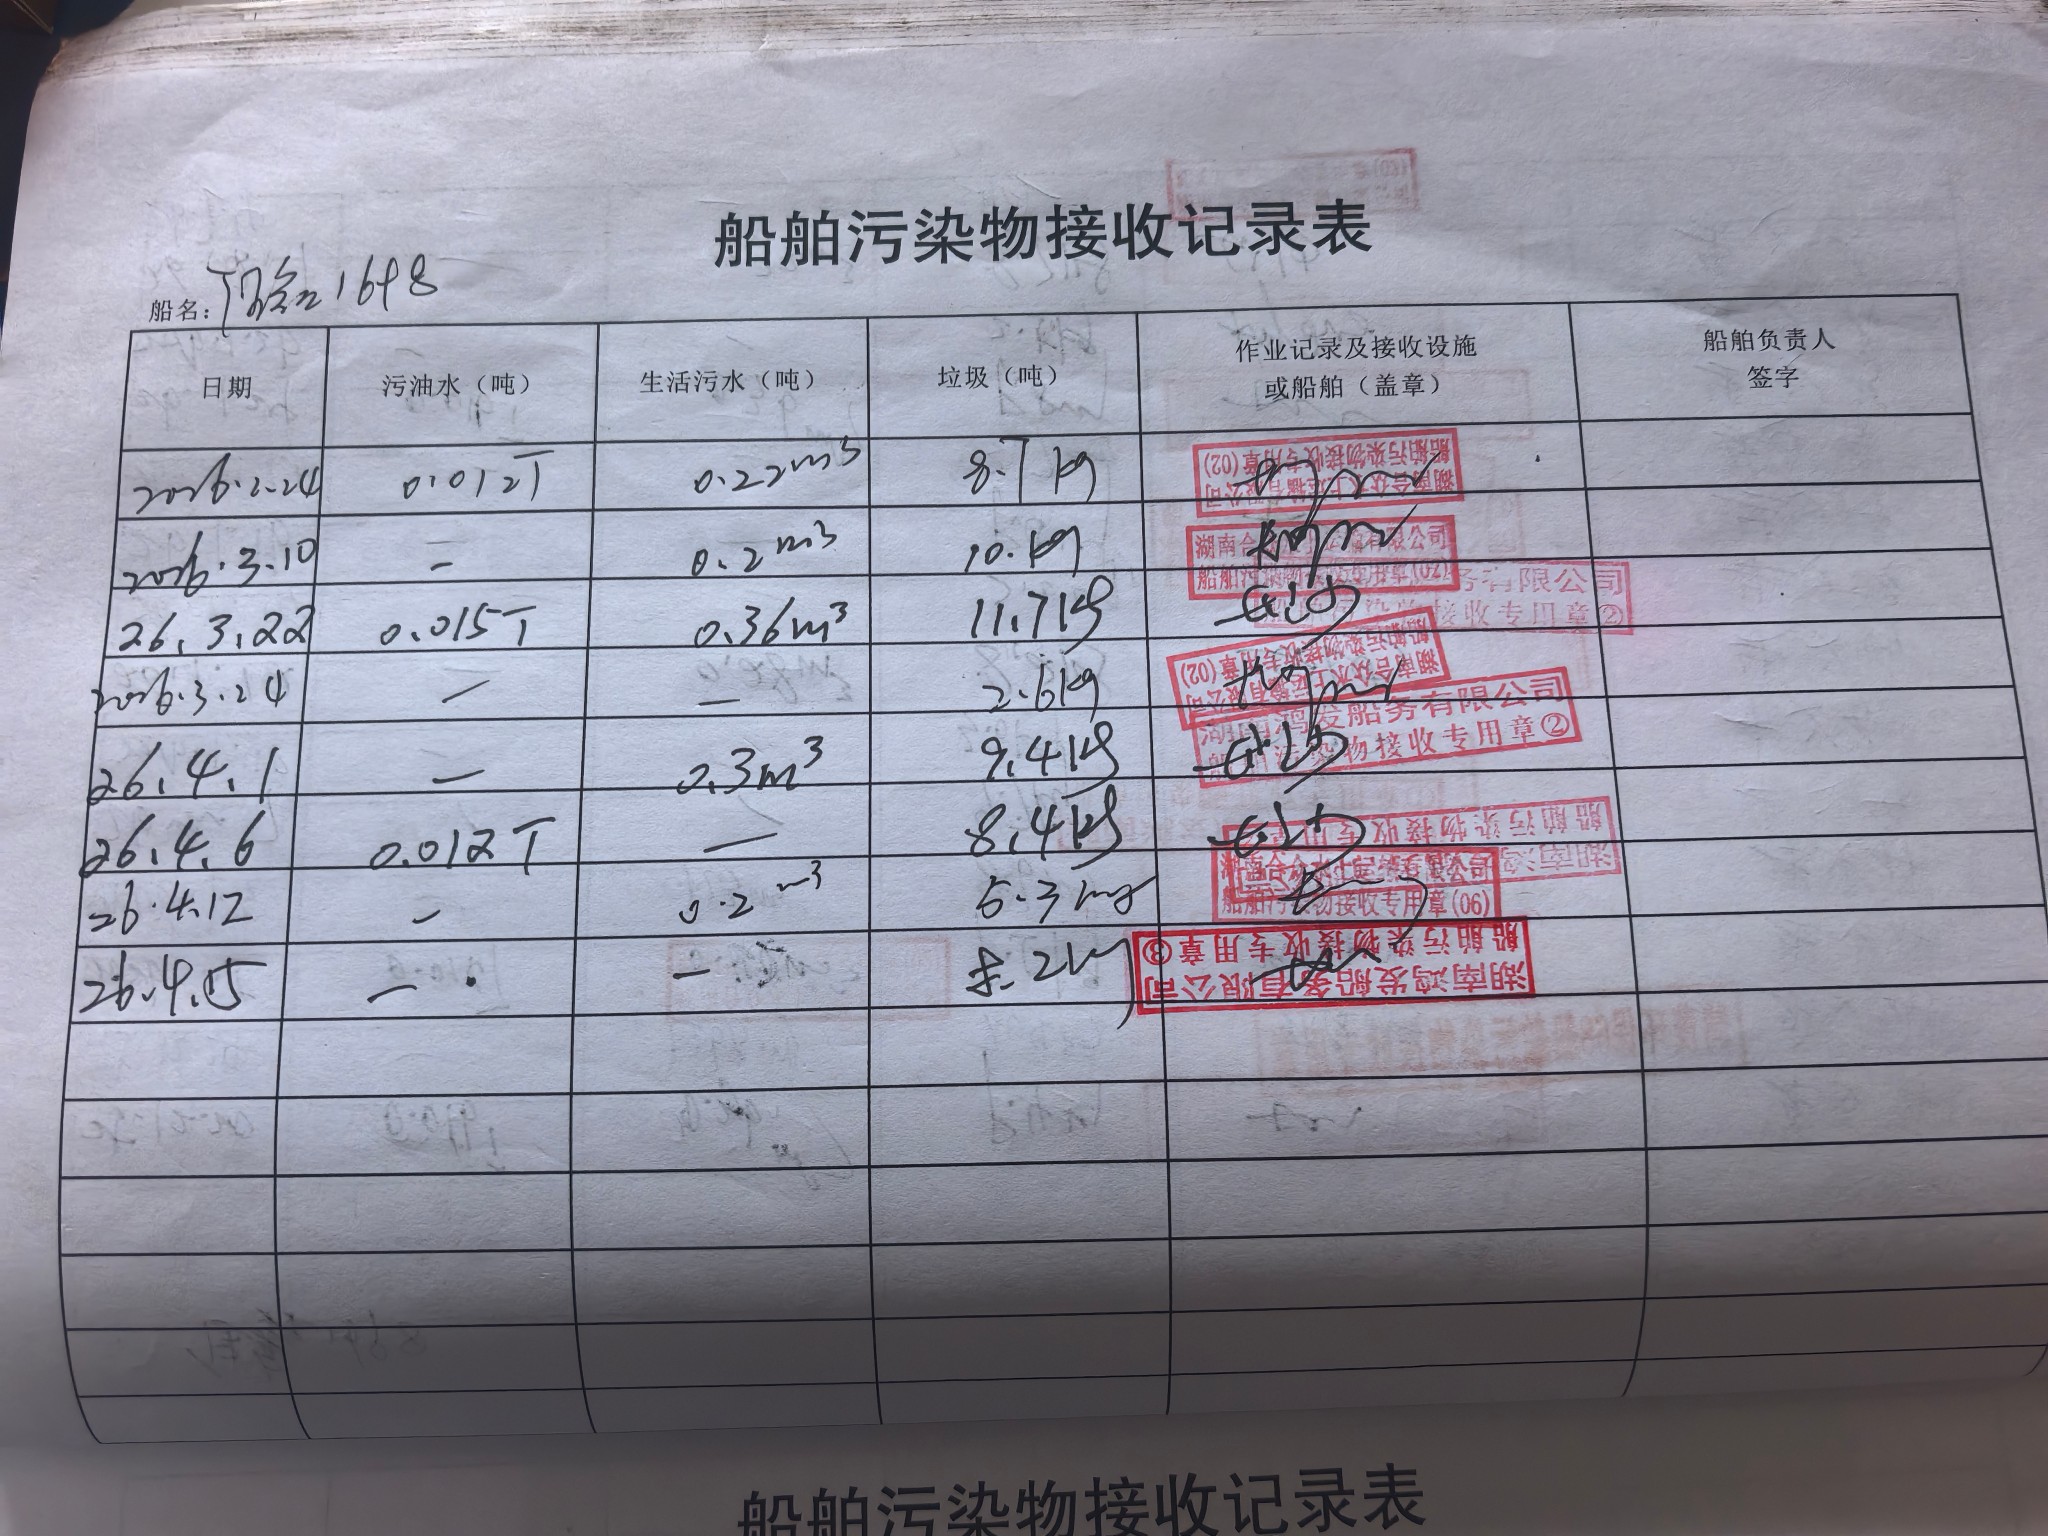 船舶污染物接收记录表
船名: 1648
日期 污油水（吨） 生活污水（吨） 垃圾（吨） 作业记录及接收设施或船舶（盖章） 船舶负责人签字
2026.2.24 0.012T 0.22m³ 8.7kg 湖南合众水上运输有限公司 船舶污染物接收专用章(02)
2026.3.10 — 0.2m³ 10.kg 湖南合 有限公司 船舶污染物接收专用章(02)
26.3.22 0.015T 0.36m³ 11.7kg 务有限公司 接收专用章②
2026.3.24 — — 2.6kg 湖南合众水上运输有限公司 船舶污染物接收专用章(02)
26.4.1 — 0.3m³ 9.4kg 湖南鸿发船务有限公司 船舶污染物接收专用章②
26.4.6 0.012T — 8.4kg 湖南鸿 船舶污染物接收专用
26.4.12 — 0.2m³ 5.3 船舶污染物接收专用章(06)
26.4.15 — — 湖南鸿发船务有限公司 船舶污染物接收专用章③
船舶污染物接收记录表